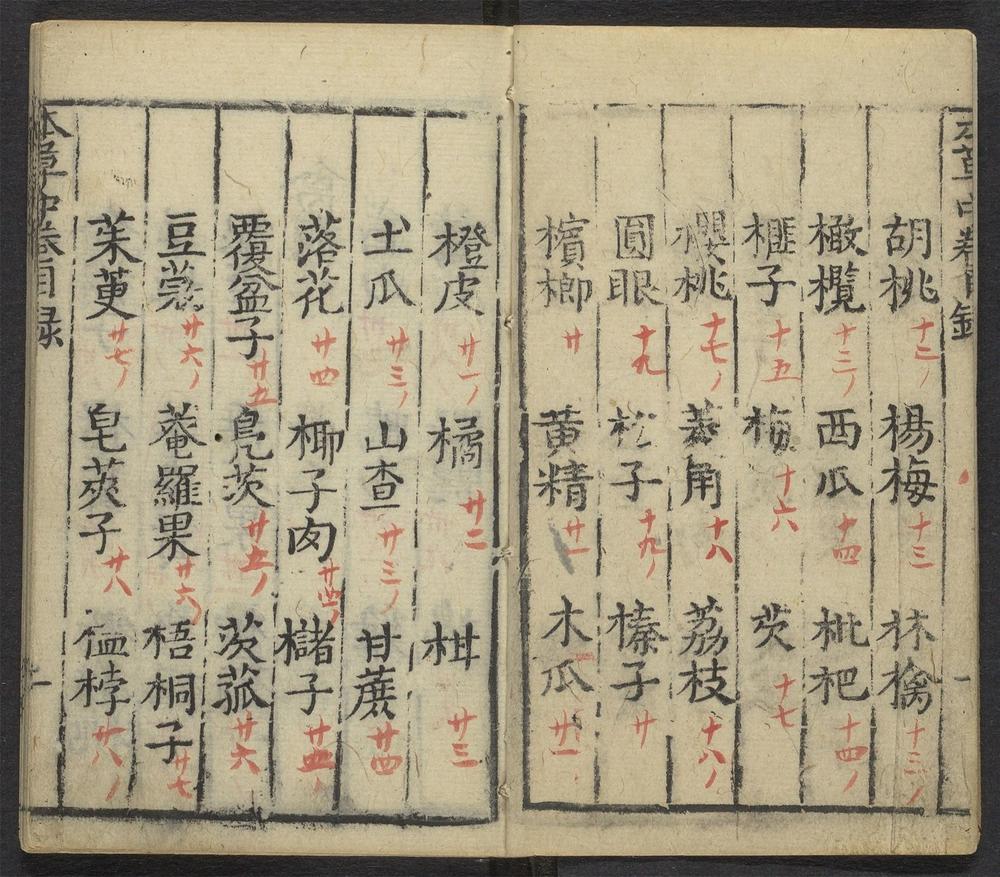 本草中卷目録
胡桃 十二 楊梅 十三 林檎 十三
橄欖 十三 西瓜 十四 枇杷 十四
榧子 十五 梅 十六 茨 十七
櫻桃 十七 菱角 十八 荔枝 十八
圓眼 十九 松子 十九 榛子 廿
檳榔 廿 黄精 廿一 木瓜 廿一
橙皮 廿一 橘 廿二 柑 廿三
土瓜 廿三 山查 廿三 甘蔗 廿四
落花 廿四 椰子肉 廿四 櫧子 廿五
覆盆子 廿五 鳧茨 廿五 茨菰 廿六
豆蔲 廿六 菴羅果 廿六 梧桐子 廿七
茱萸 廿七 皂莢子 廿八 榅桲 廿八
本草中卷目録 一